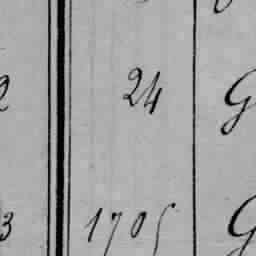 2 24 G
3 1705 G